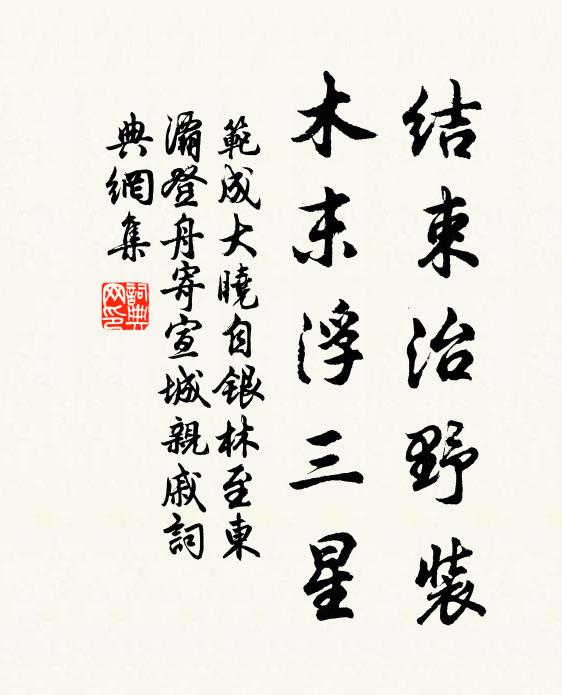 結束治野裝
木末浮三星
範成大曉自銀林至東
灞登舟寄宣城親戚詞
典網集
詞典網印